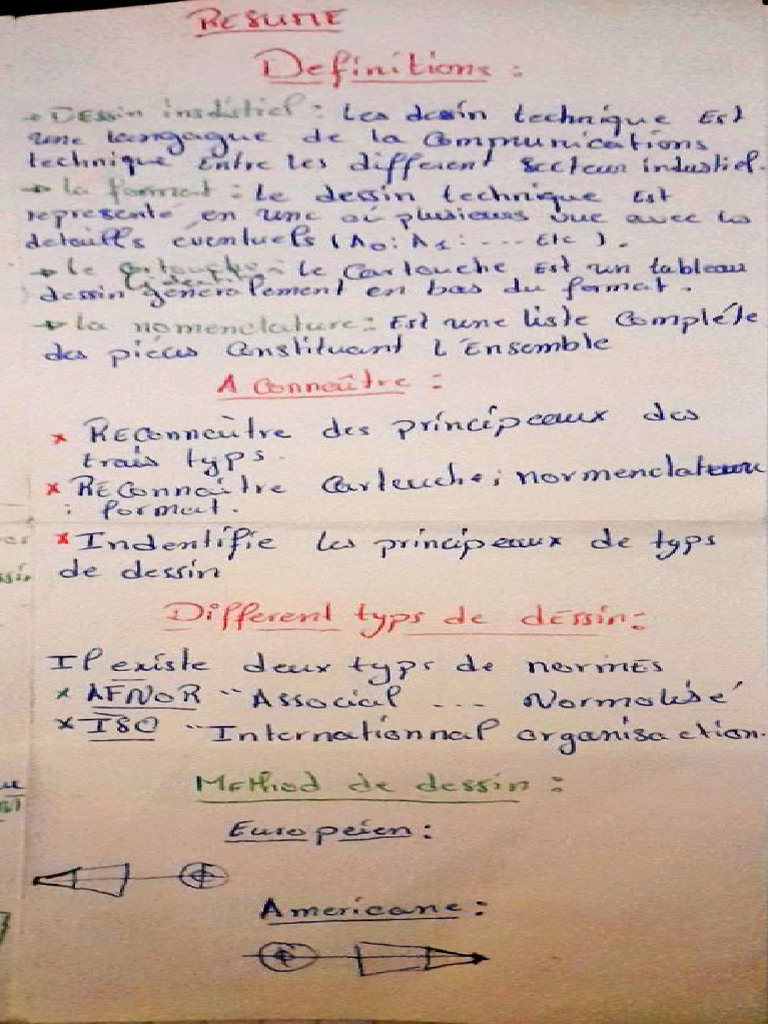 RESUME
Definitions :
→ Dessin insdistief : Les dessin technique Est
une langague de la Communications
technique Entre les different secteur industief.
→ la format : Le dessin technique Est
represente en une ou plusieurs vue avec les
détaills éventuels (A0: A1: ... Etc ).
→ le : le Cartouche Est un tableau
dessin généralement en bas du format.
→ la nomenclature : Est une liste Complète
des pièces Constituant l'Ensemble
A Connaître :
x REConnaître des principeaux des
trais typs.
x REConnaître Cartouche ; normenclateure
; format.
x Indentifie les principeaux de typs
de dessin
Different typs de dessin :
Il existe deux typs de normes
x AFNOR "Associal ... Normalisé
x ISO "Internationnal organisaction.
Method de dessin :
Européien :
Americane :